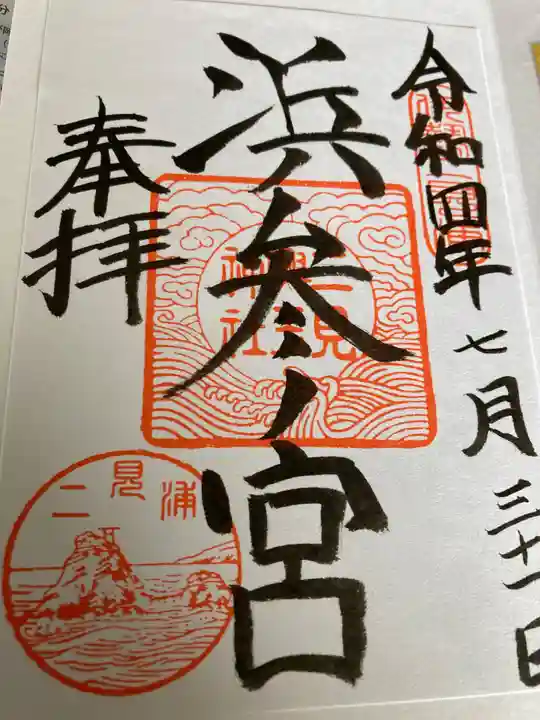 令和四年七月三十一日
浜参ノ宮
奉拝
二見
興玉
神社
二見浦